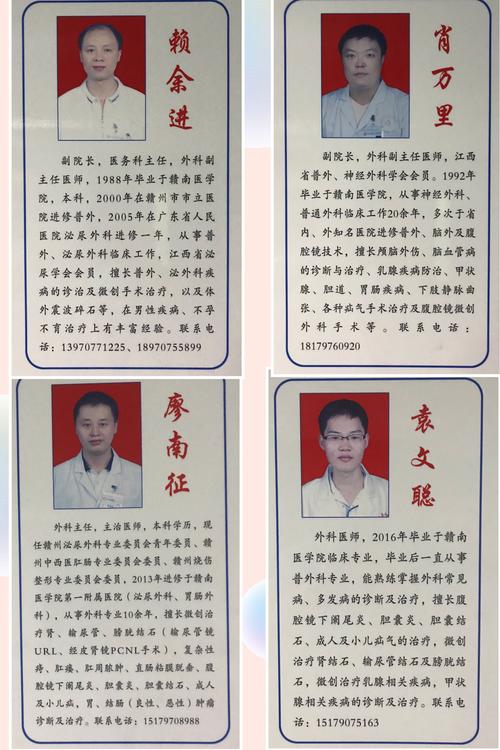 赖余进
副院长，医务科主任，外科副
主任医师，1988年毕业于赣南医学
院，本科，2000年在赣州市市立医
院进修普外，2005年在广东省人民
医院泌尿外科进修一年，从事普
外、泌尿外科临床工作，江西省泌
尿学会会员，擅长普外、泌外科疾
病的诊治及微创手术治疗，以及体
外震波碎石等，在男性疾病、不孕
不育治疗上有丰富经验。联系电
话：13970771225、18970755899
肖万里
副院长，外科副主任医师，江西
省普外、神经外科学会会员。1992年
毕业于赣南医学院，从事神经外科、
普通外科临床工作20余年，多次于省
内、外知名医院进修普外、脑外及腹
腔镜技术，擅长颅脑外伤、脑血管病
的诊断与治疗、乳腺疾病防治、甲状
腺、胆道、胃肠疾病、下肢静脉曲
张、各种疝气手术治疗及腹腔镜微创
外科手术等。联系电话：
18179760920
廖南征
外科主任，主治医师，本科学历，现
任赣州泌尿外科专业委员会青年委员、赣
州中西医肛肠专业委员会委员、赣州烧伤
整形专业委员会委员，2013年进修于赣南
医学院第一附属医院（泌尿外科、胃肠外
科），从事外科专业10余年，擅长微创治
疗肾、输尿管、膀胱结石（输尿管镜
URL、经皮肾镜PCNL手术），复杂性
痔、肛瘘、肛周脓肿、直肠粘膜脱垂、腹
腔镜下阑尾炎、胆囊炎、胆囊结石、成人
及小儿疝，胃、结肠（良性、恶性）肿瘤
诊断及治疗。联系电话：15179708988
袁文聪
外科医师，2016年毕业于赣南
医学院临床专业，毕业后一直从事
普外科专业，能熟练掌握外科常见
病、多发病的诊断及治疗，擅长腹
腔镜下阑尾炎、胆囊炎、胆囊结
石、成人及小儿疝气的治疗，微创
治疗肾结石、输尿管结石及膀胱结
石，微创治疗乳腺相关疾病，甲状
腺相关疾病的诊断及治疗。联系电
话：15179075163